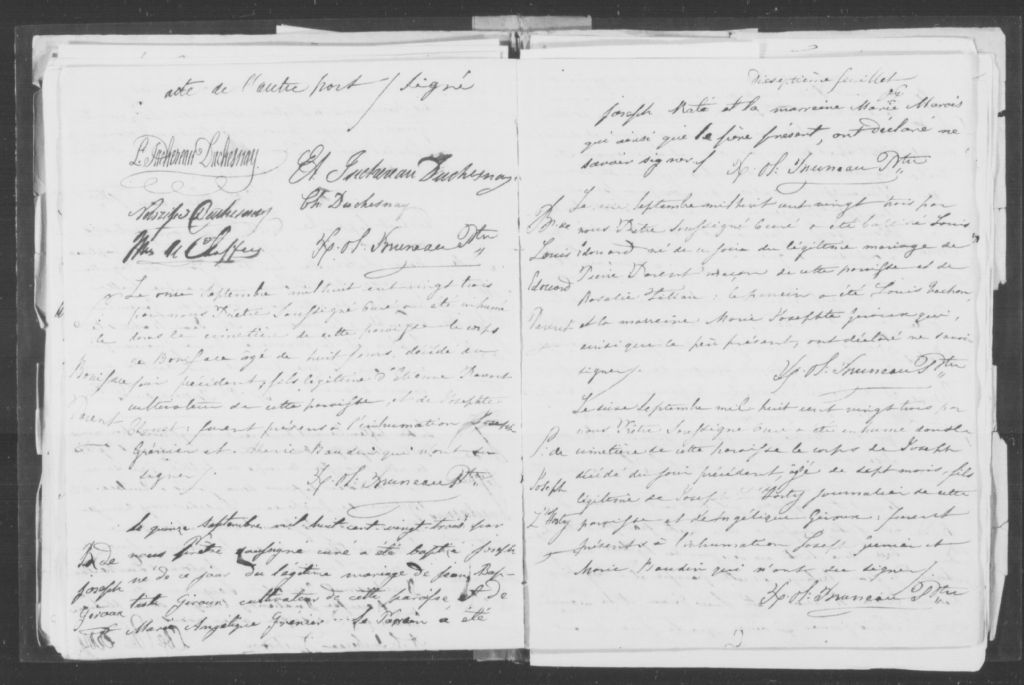 acte de l'autre part / signé
Duchesnay
Et Juchereau Duchesnay
Narcisse Duchesnay
Th Duchesnay
Wm
X. Ol. Bruneau Ptre
Le onze Septembre mil huit cent vingt trois
par nous Prêtre Soussigné Curé a été inhumé
S. de dans le cimetière de cette paroisse le corps
de Boniface âgé de huit jours, décédé du
Boniface jour précédent, fils légitime d'Etienne Parent
Parent cultivateur de cette paroisse, et de Josephte
: furent présens à l'inhumation Joseph
Grenier et Marie Baudin qui n'ont su
signer /
X. Ol. Bruneau Ptre
Le quinze Septembre mil huit cent vingt trois par
B. de nous Prêtre soussigné curé a été baptisé Joseph
Joseph né de ce jour du légitime mariage de Jean Bap-
Giroux tiste Giroux cultivateur de cette paroisse et de
Marie Angélique Grenier Le Parein a été
Dixseptième feuillet
Joseph Maté et la marreine Marie Marois
qui ainsi que le père présent, ont déclaré ne
savoir signer /
X. Ol. Bruneau Ptre
Le Septembre mil huit cent vingt trois par
B. de nous Prêtre Soussigné Curé a été batisé Louis
Louis Edouard né de ce jour du légitime mariage de
Edouard Pierre Parent maçon de cette paroisse et de
Rosalie : le parein a été Louis Vachon,
Parent et la marreine Marie Josephte Giroux qui,
ainsi que le père présent, ont déclaré ne savoir
signer /
X. Ol. Bruneau Ptre
Le seize Septembre mil huit cent vingt trois par
nous Prêtre Soussigné Curé a été inhumé dans le
S. de cimetière de cette paroisse le corps de Joseph
Joseph décédé du jour précédent âgé de sept mois, fils
légitime de Joseph L'Horty journalier de cette
L'Horty paroisse et de Angélique Giroux ; furent
présents à l'inhumation Joseph Grenier et
Marie Baudin qui n'ont su signer /
X. Ol. Bruneau Ptre